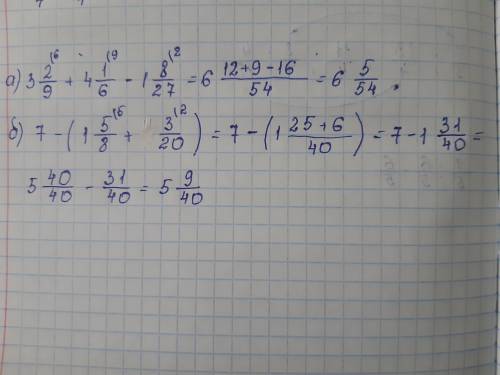 а) 3 2/9 (6 + 4 1/6 (9 - 1 8/27 (2 = 6 (12+9-16)/54 = 6 5/54 .
б) 7 - (1 5/8 (5 + 3/20 (2) = 7 - (1 (25+6)/40) = 7 - 1 31/40 =
5 40/40 - 31/40 = 5 9/40